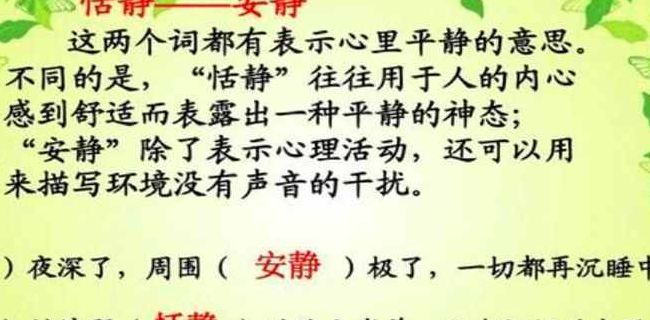 恬静——安静
这两个词都有表示心里平静的意思。
不同的是，“恬静”往往用于人的内心
感到舒适而表露出一种平静的神态；
“安静”除了表示心理活动，还可以用
来描写环境没有声音的干扰。
）夜深了，周围（ 安静 ）极了，一切都再沉睡中
恬静